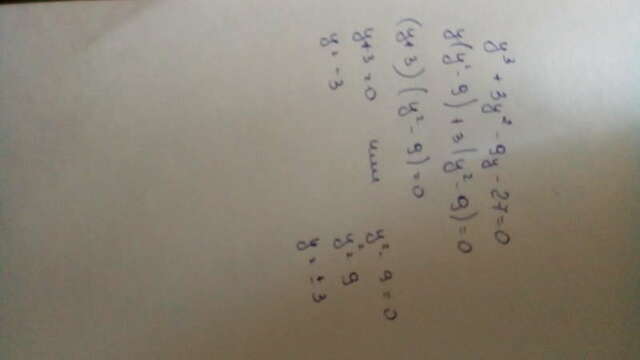 y³ + 3y² - 9y - 27 = 0
y(y² - 9) + 3(y² - 9) = 0
(y+3)(y² - 9) = 0
y+3 = 0 или y² - 9 = 0
y = -3 y² = 9
y = ±3